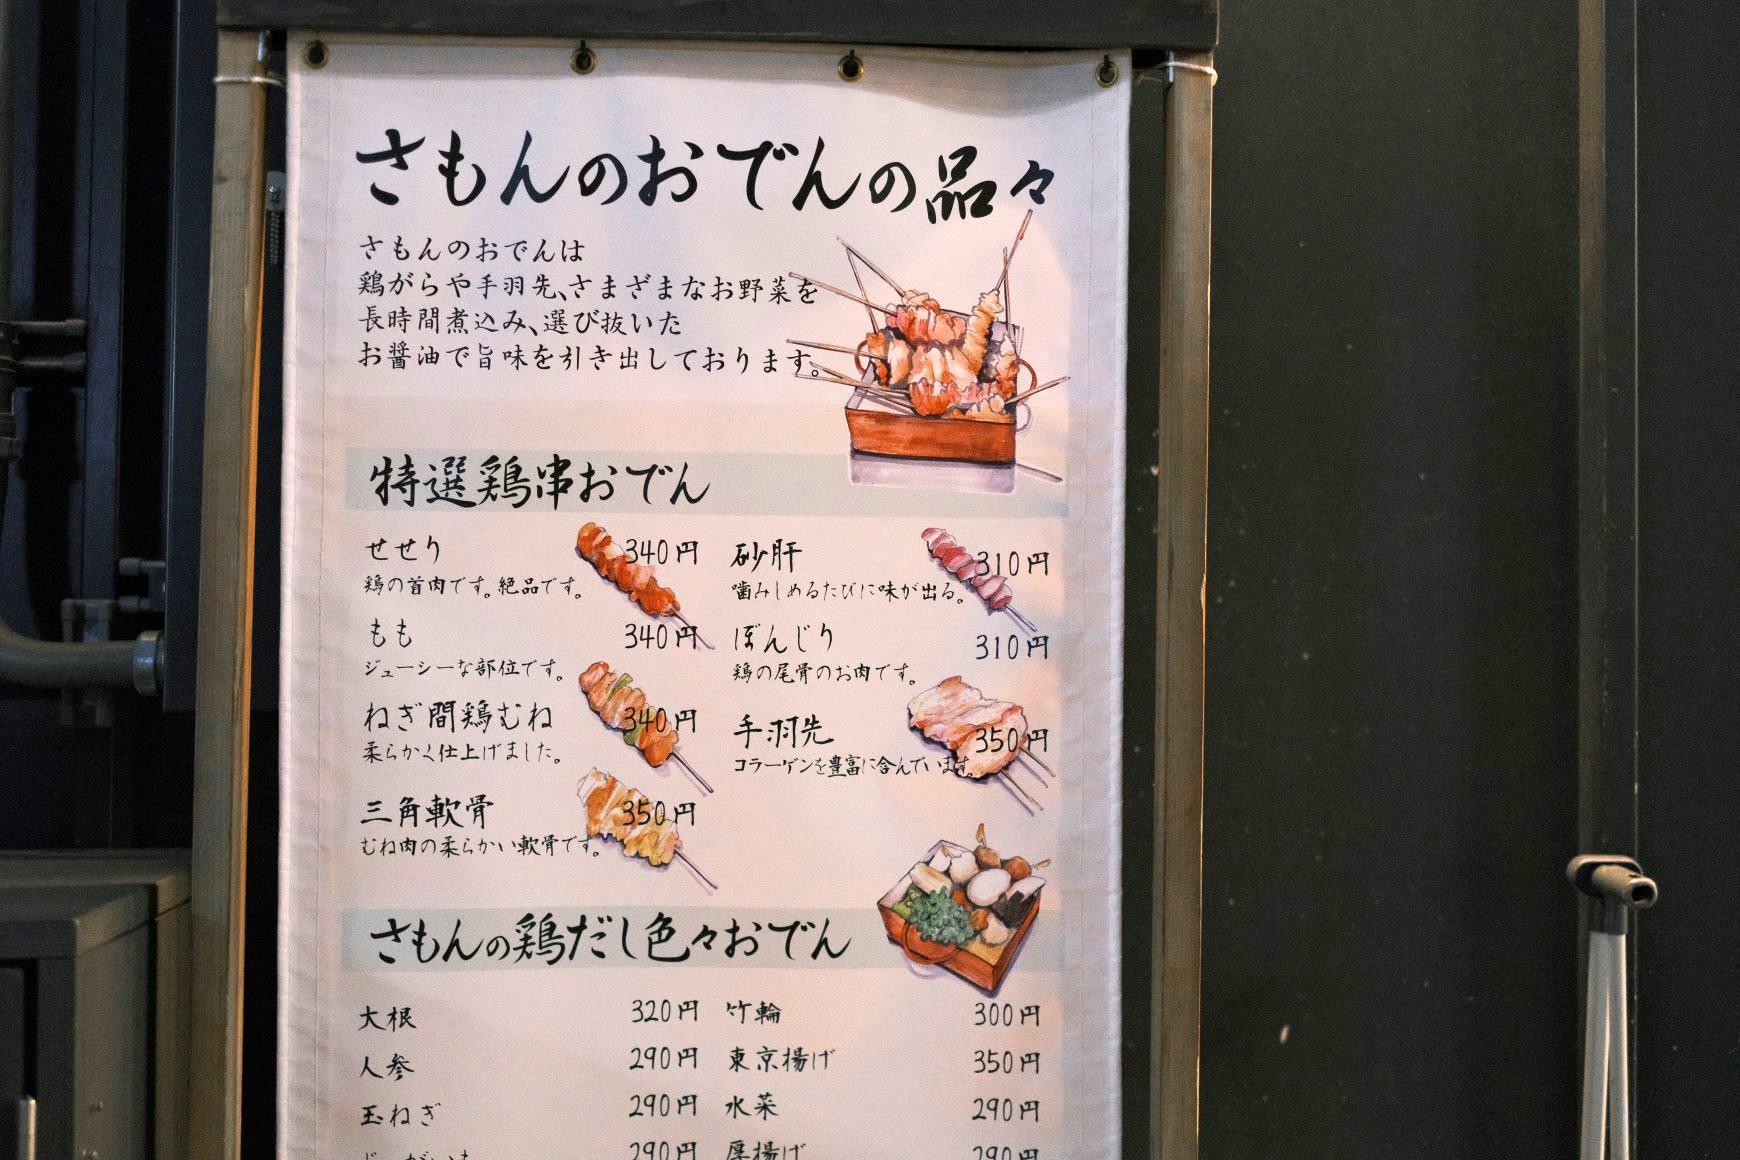 さもんのおでんの品々
さもんのおでんは
鶏がらや手羽先、さまざまなお野菜を
長時間煮込み、選び抜いた
お醤油で旨味を引き出しております。
特選鶏串おでん
せせり 340円
鶏の首肉です。絶品です。
もも 340円
ジューシーな部位です。
ねぎ間鶏むね 340円
柔らかく仕上げました。
三角軟骨 350円
むね肉の柔らかい軟骨です。
砂肝 310円
噛みしめるたびに味が出る。
ぼんじり 310円
鶏の尾骨のお肉です。
手羽先 350円
コラーゲンを豊富に含んでいます。
さもんの鶏だし色々おでん
大根 320円 竹輪 300円
人参 290円 東京揚げ 350円
玉ねぎ 290円 水菜 290円
290円 厚揚げ 290円